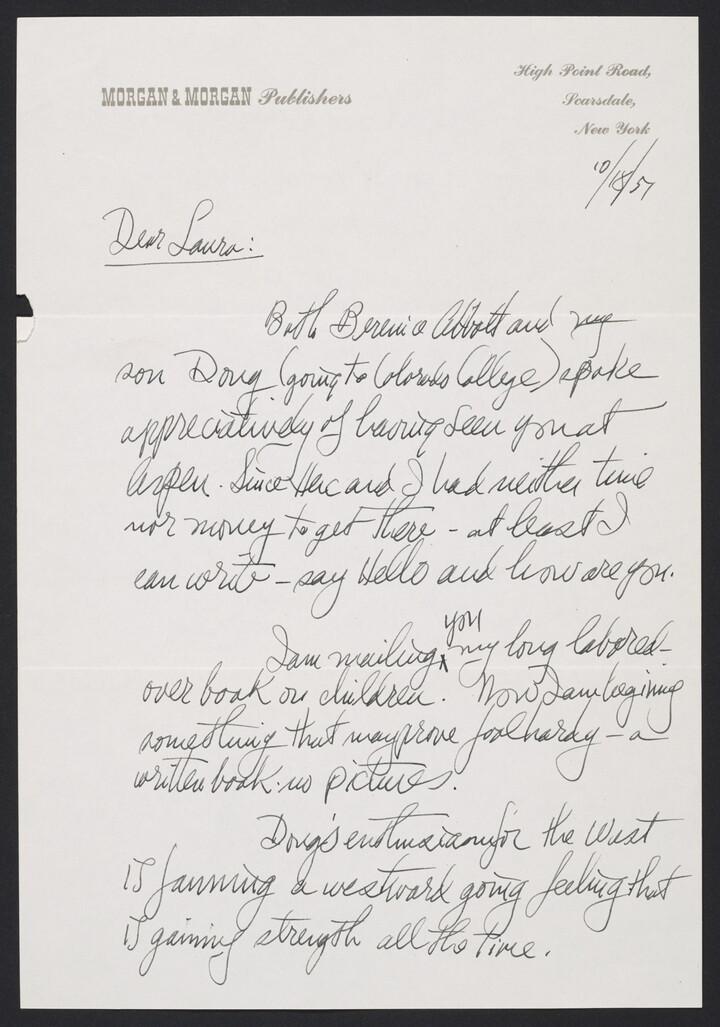 MORGAN & MORGAN Publishers
High Point Road,
Scarsdale,
New York
10/18/51
Dear Laura:
Both Berenice Abbott and my
son Doug (going to Colorado College) spoke
appreciatively of having seen you at
Aspen. Since Herc and I had neither time
nor money to get there - at least I
can write - say Hello and how are you.
you
I am mailing my long labored-
over book on children. Now I am begining
something that may prove foolhardy - a
written book - no pictures.
Doug's enthusiasm for the West
is fanning a westward going feeling that
is gaining strength all the time.